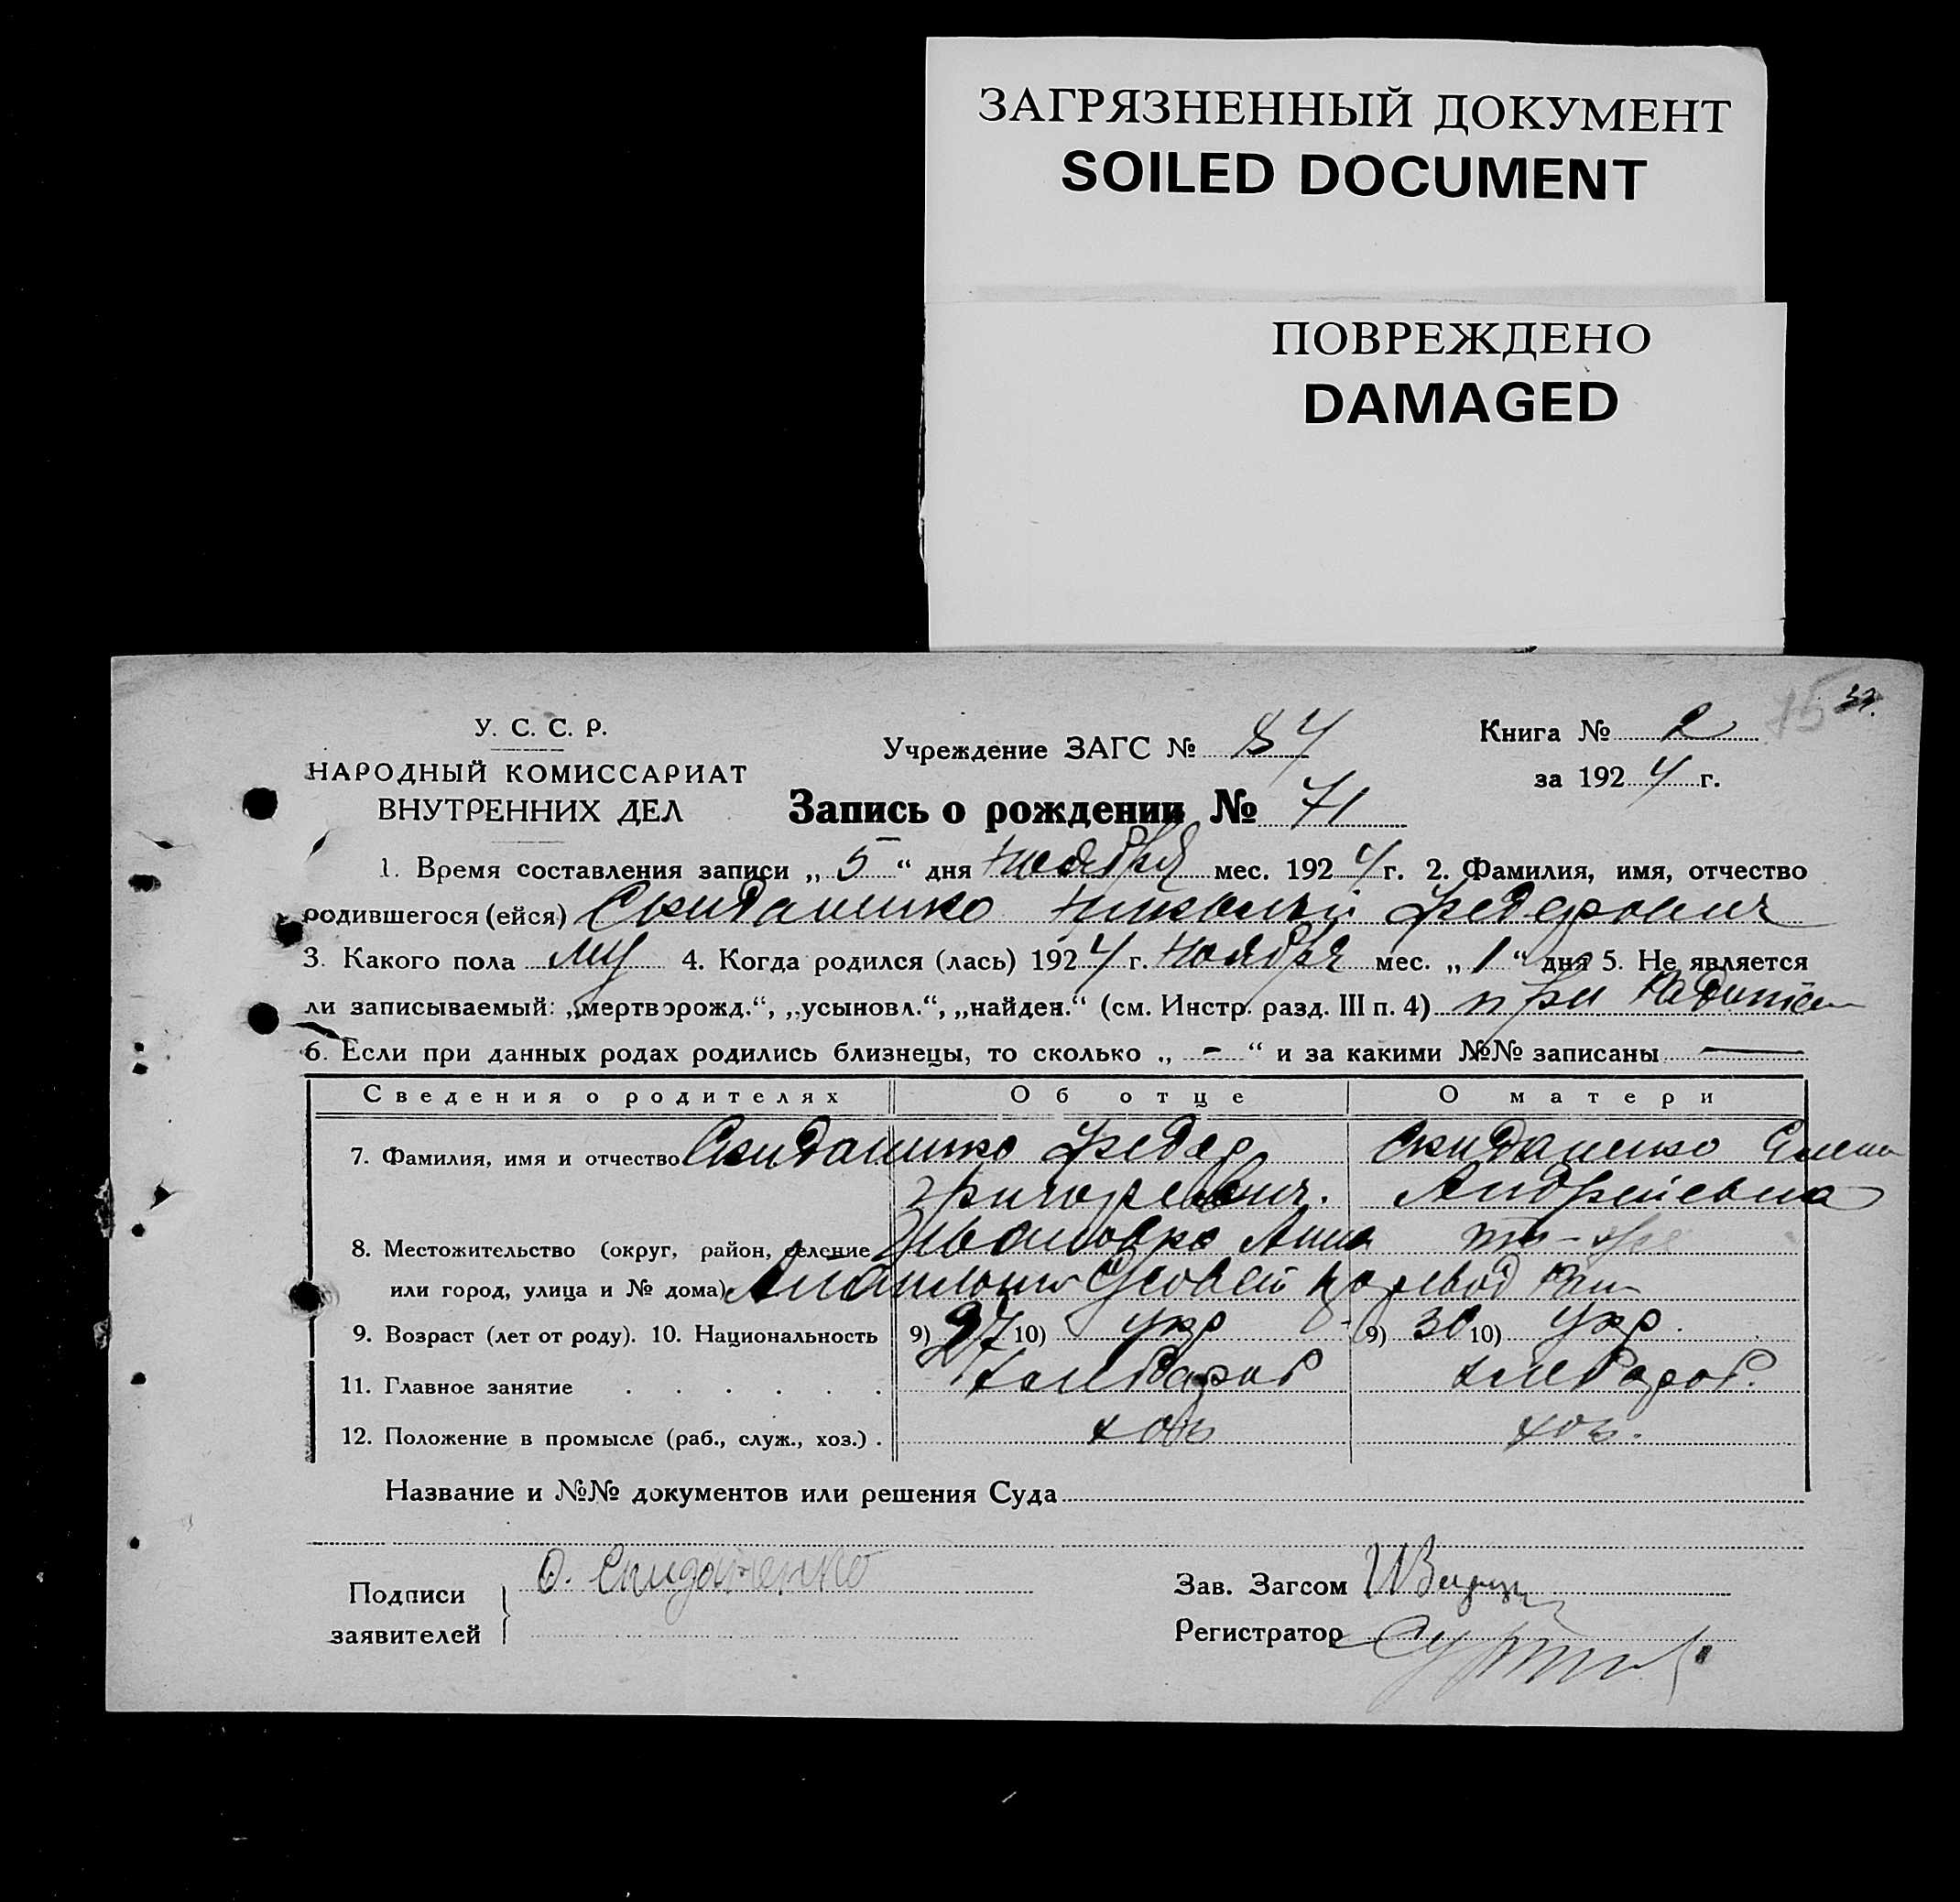 ЗАГРЯЗНЕННЫЙ ДОКУМЕНТ
SOILED DOCUMENT
ПОВРЕЖДЕНО
DAMAGED
75
У. С. С. Р.
НАРОДНЫЙ КОМИССАРИАТ
ВНУТРЕННИХ ДЕЛ
Учреждение ЗАГС № 84
Книга № 2
за 1924 г.
Запись о рождении № 71
1. Время составления записи „5“ дня Ноября мес. 1924 г. 2. Фамилия, имя, отчество
родившегося (ейся) Скиданенко Николай Федорович
3. Какого пола муж 4. Когда родился (лась) 1924 г. Ноября мес. „1“ дня 5. Не является
ли записываемый: „мертворожд.“, „усыновл.“, „найден.“ (см. Инстр. разд. III п. 4) при
6. Если при данных родах родились близнецы, то сколько „-“ и за какими №№ записаны —
Сведения о родителях Об отце О матери
7. Фамилия, имя и отчество Скиданенко Федор Скиданенко Елена
Григоревич. Андреевна
8. Местожительство (округ, район, селение
или город, улица и № дома)
9. Возраст (лет от роду). 10. Национальность 9) 27 10) укр 9) 30 10) укр.
11. Главное занятие хлебороб хлебороб.
12. Положение в промысле (раб., служ., хоз.) . хоз хоз.
Название и №№ документов или решения Суда
Подписи
заявителей
Ф. Скиданенко
Зав. Загсом
Регистратор